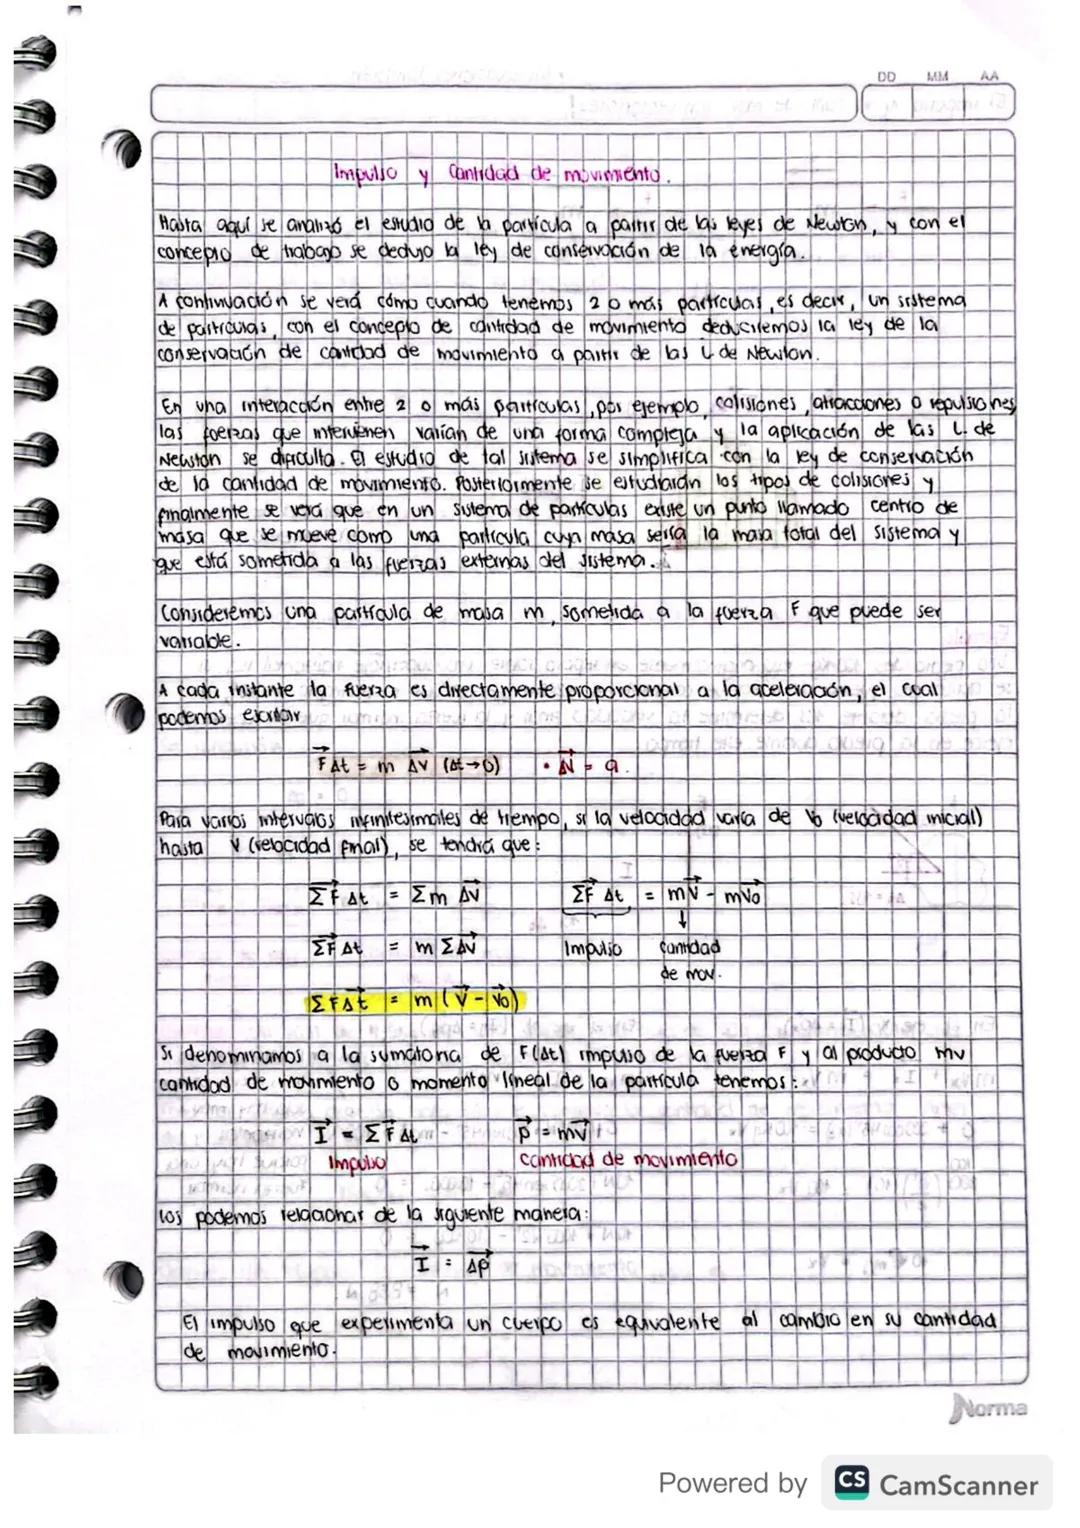 DD MM AA
Impulso y Cantidad de movimiento.
Hasta aquí se analizó el estudio de la partícula a partir de las leyes de Newton, y con el
concepto de trabajo se dedujo la ley de conservación de la energía.
A continuación se verá cómo cuando tenemos 2 o más partículas, es decir, un sistema
de partículas, con el concepto de cantidad de movimiento deduciremos la ley de la
conservación de cantidad de movimiento a partir de las L de Newton.
En una interacción entre 2 o más partículas, por ejemplo, colisiones, atracciones o repulsiones
las fuerzas que intervienen varían de una forma compleja y la aplicación de las L. de
Newston se dificulta. El estudio de tal sistema se simplifica con la ley de conservación
de la cantidad de movimiento. Posteriormente se estudiarán los tipos de colisiones y
finalmente se verá que en un sistema de partículas existe un punto llamado centro de
masa que se mueve como una partícula cuya masa sería la masa total del sistema y
que está sometida a las fuerzas externas del sistema.
Consideremos una partícula de masa m, sometida a la fuerza F que puede ser
variable.
A cada instante la fuerza es directamente proporcional a la aceleración, el cual
podemos escribir
F⃗Δt = m Δv⃗ (Δt→0) • Δv⃗ = a.
Para varios intervalos infinitesimales de tiempo, si la velocidad varía de V₀ (velocidad inicial)
hasta V (velocidad final), se tendrá que:
ΣF⃗ Δt = Σm Δv⃗ ΣF⃗ Δt = mV⃗ - mV⃗₀
ΣF⃗ Δt = m ΣΔv⃗ Impulso cantidad
de mov.
ΣFΔt⃗ = m (V⃗ - V⃗₀)
Si denominamos a la sumatoria de F(Δt) impulso de la fuerza F y al producto mv
cantidad de movimiento o momento lineal de la partícula tenemos:
I⃗ = ΣF⃗ Δt p⃗ = mv⃗
Impulso cantidad de movimiento
los podemos relacionar de la siguiente manera:
I⃗ = Δp⃗
El impulso que experimenta un cuerpo es equivalente al cambio en su cantidad
de movimiento.
Norma
Powered by CS CamScanner